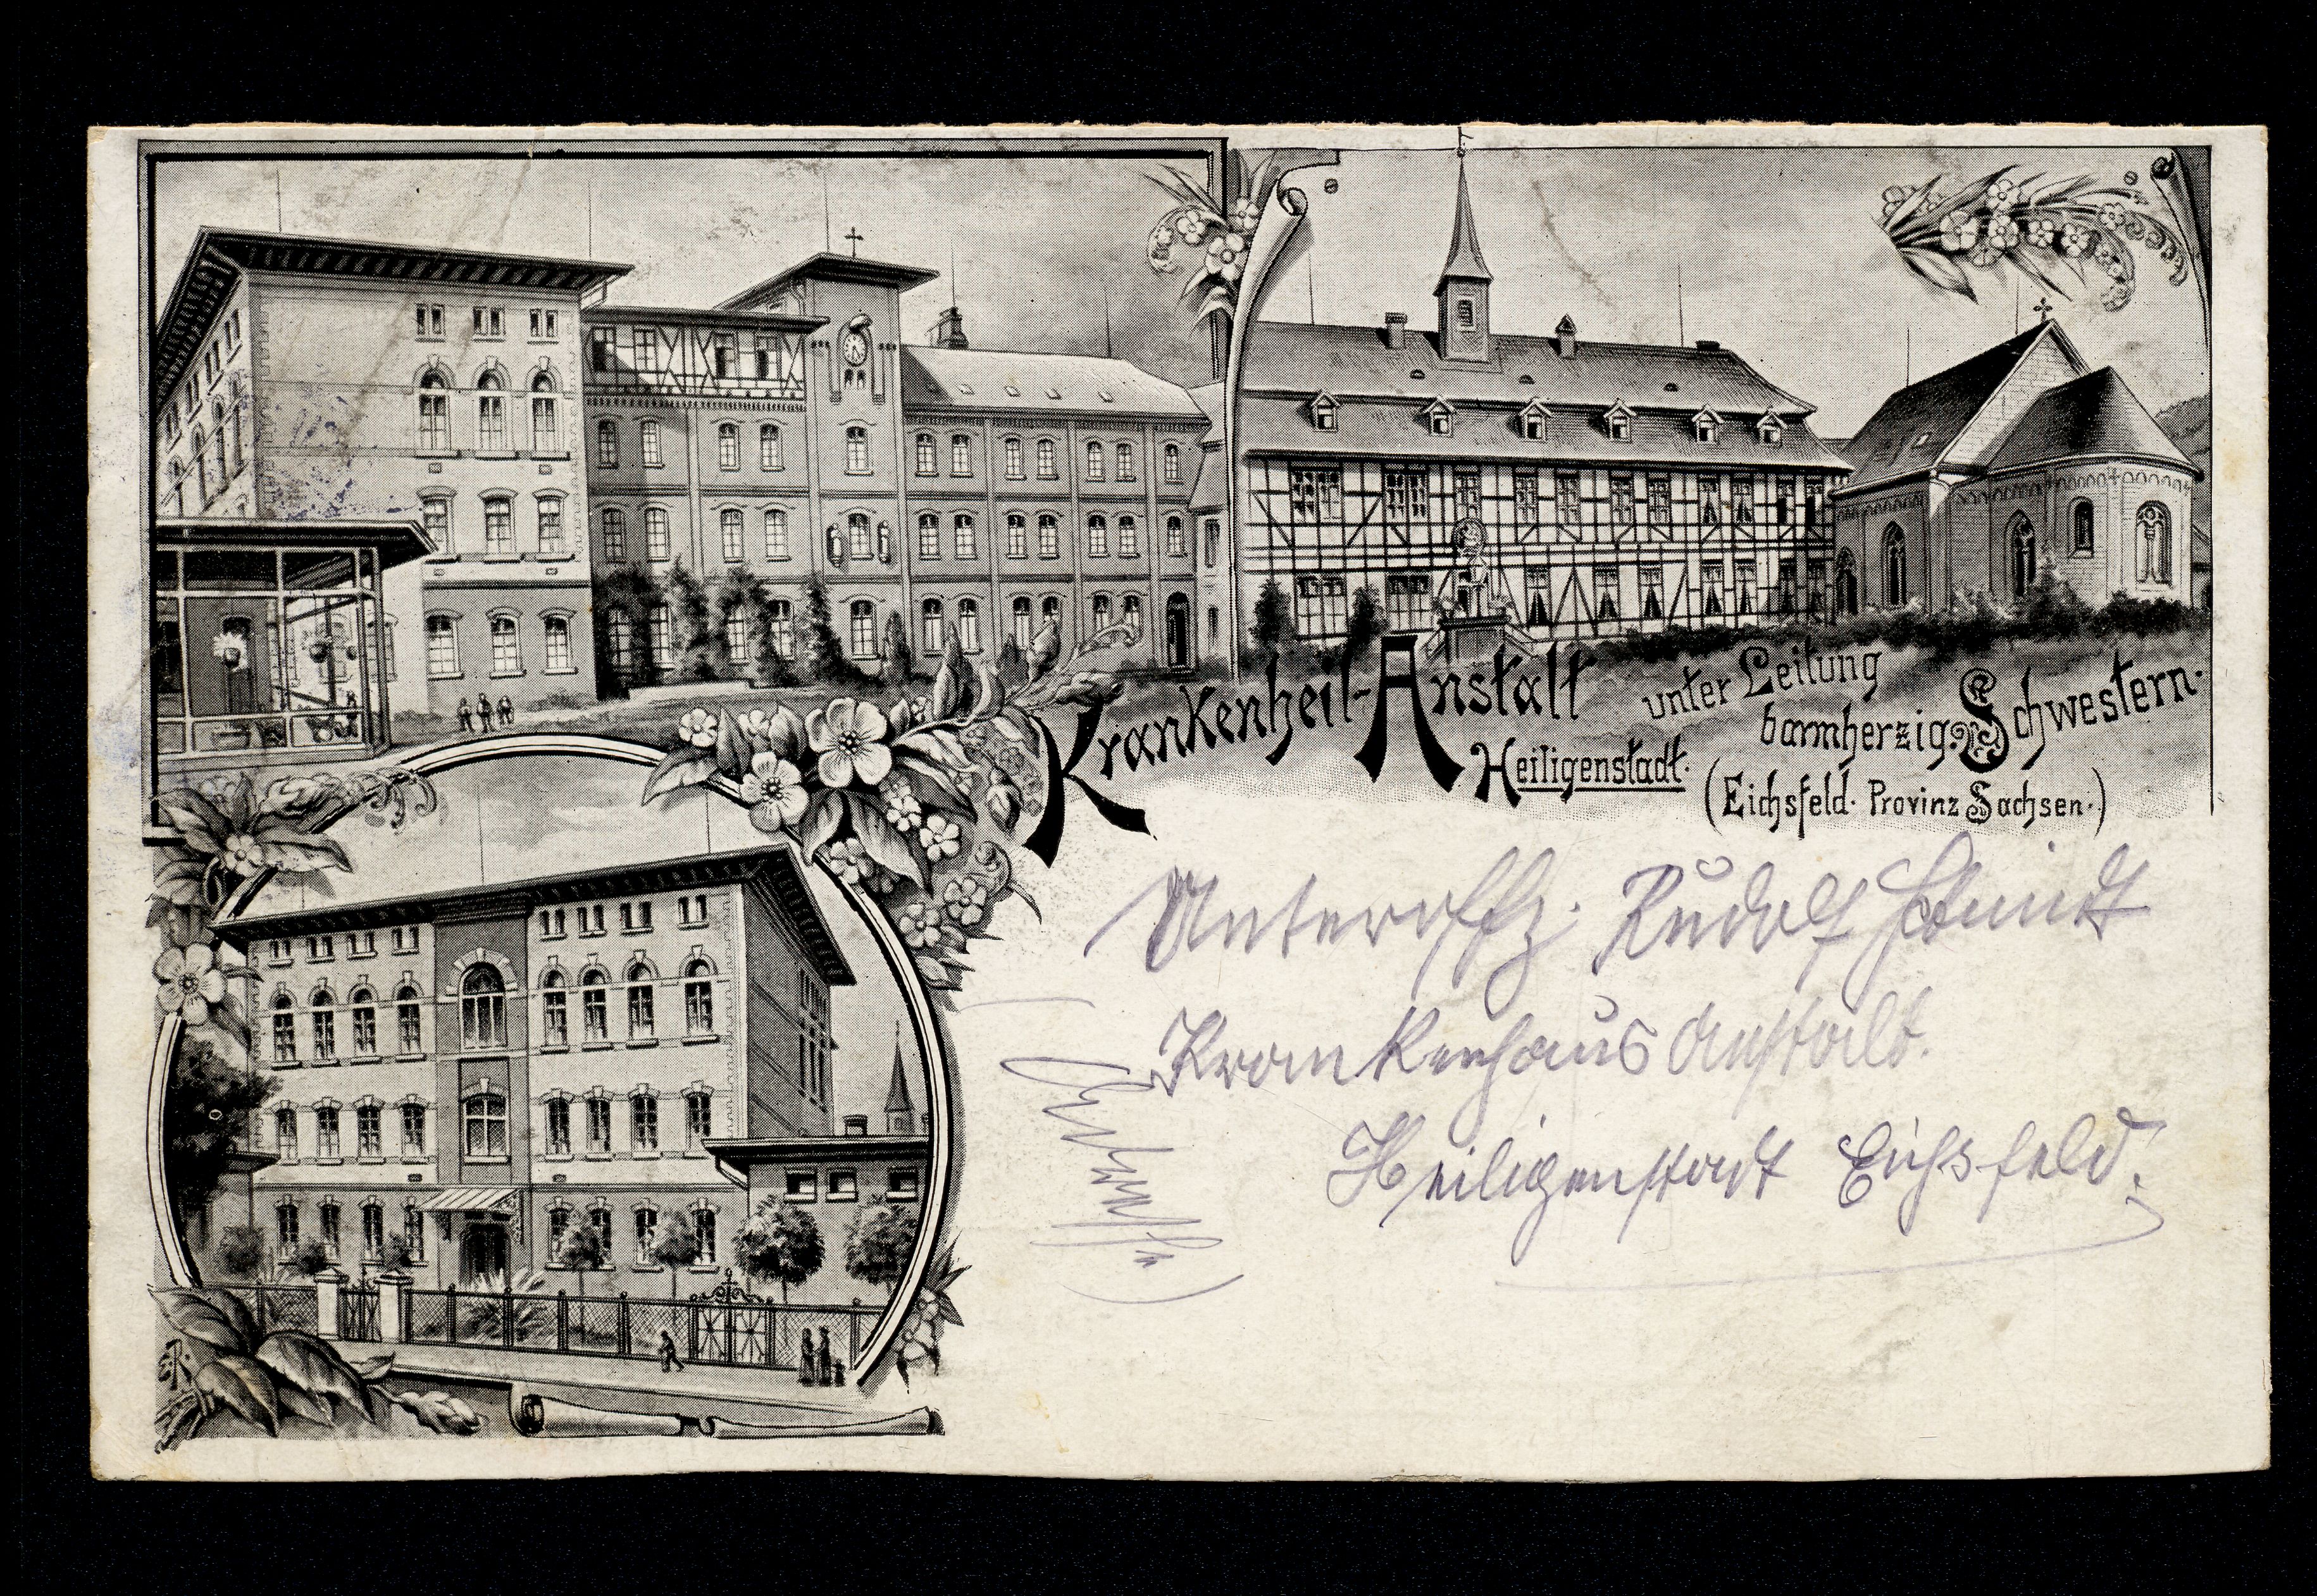 Krankenheil-Anstalt unter Leitung
barmherzig. Schwestern.
Heiligenstadt.
(Eichsfeld. Provinz Sachsen.)
Unteroffz. Rudolf Schmidt
Krankenhaus Anstalt.
Heiligenstadt Eichsfeld.